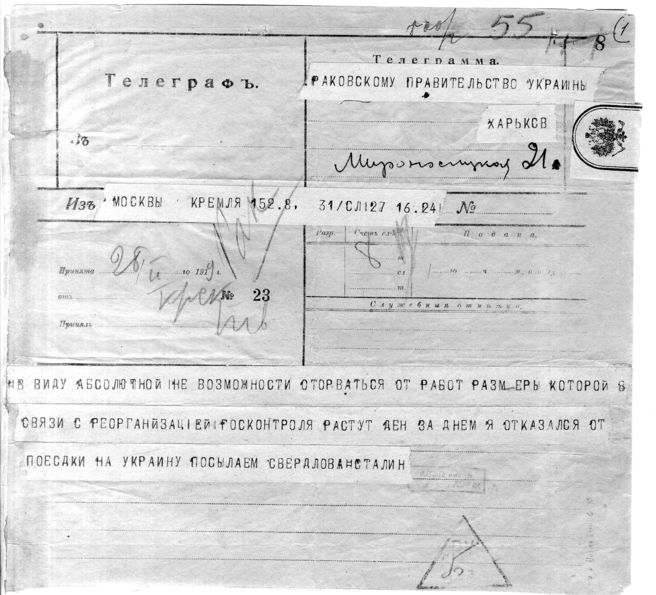 55
8
1
Телеграфъ.
Телеграмма.
РАКОВСКОМУ ПРАВИТЕЛЬСТВО УКРАИНЫ
ХАРЬКОВ
Мироносицкая 21.
Изъ МОСКВЫ КРЕМЛЯ 152.8, 31/СЛ127 16.24 №
Разр. Счетъ Подана.
8
сл
Принята 28/II 1919 г.
№ 23
Принялъ
Служебныя отмѣтки.
ВВИДУ АБСОЛЮТНОЙ НЕ ВОЗМОЖНОСТИ ОТОРВАТЬСЯ ОТ РАБОТ РАЗМЕРЬ КОТОРОЙ В
СВЯЗИ С РЕОРГАНИЗАЦIЕЙ ГОСКОНТРОЛЯ РАСТУТ ДЕН ЗА ДНЕМ Я ОТКАЗАЛСЯ ОТ
ПОЕСДКИ НА УКРАИНУ ПОСЫЛАЕМ СВЕРДЛОВА=СТАЛИН